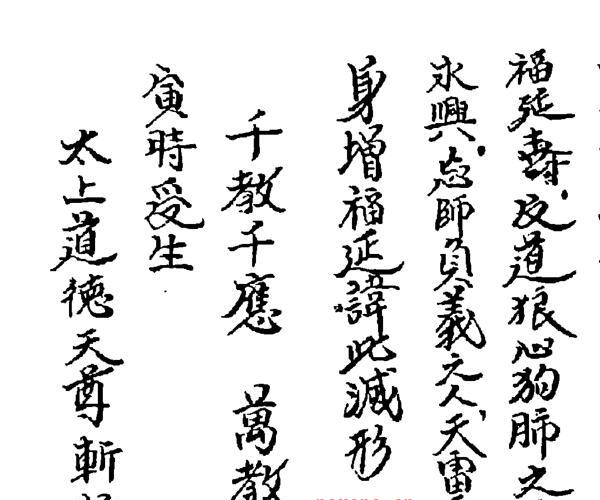 福延壽反道狼心狗肺之
永興忘師負義之人天雷
身增福延諱此滅形
千教千應 萬教
寅時受生
太上道德天尊斬